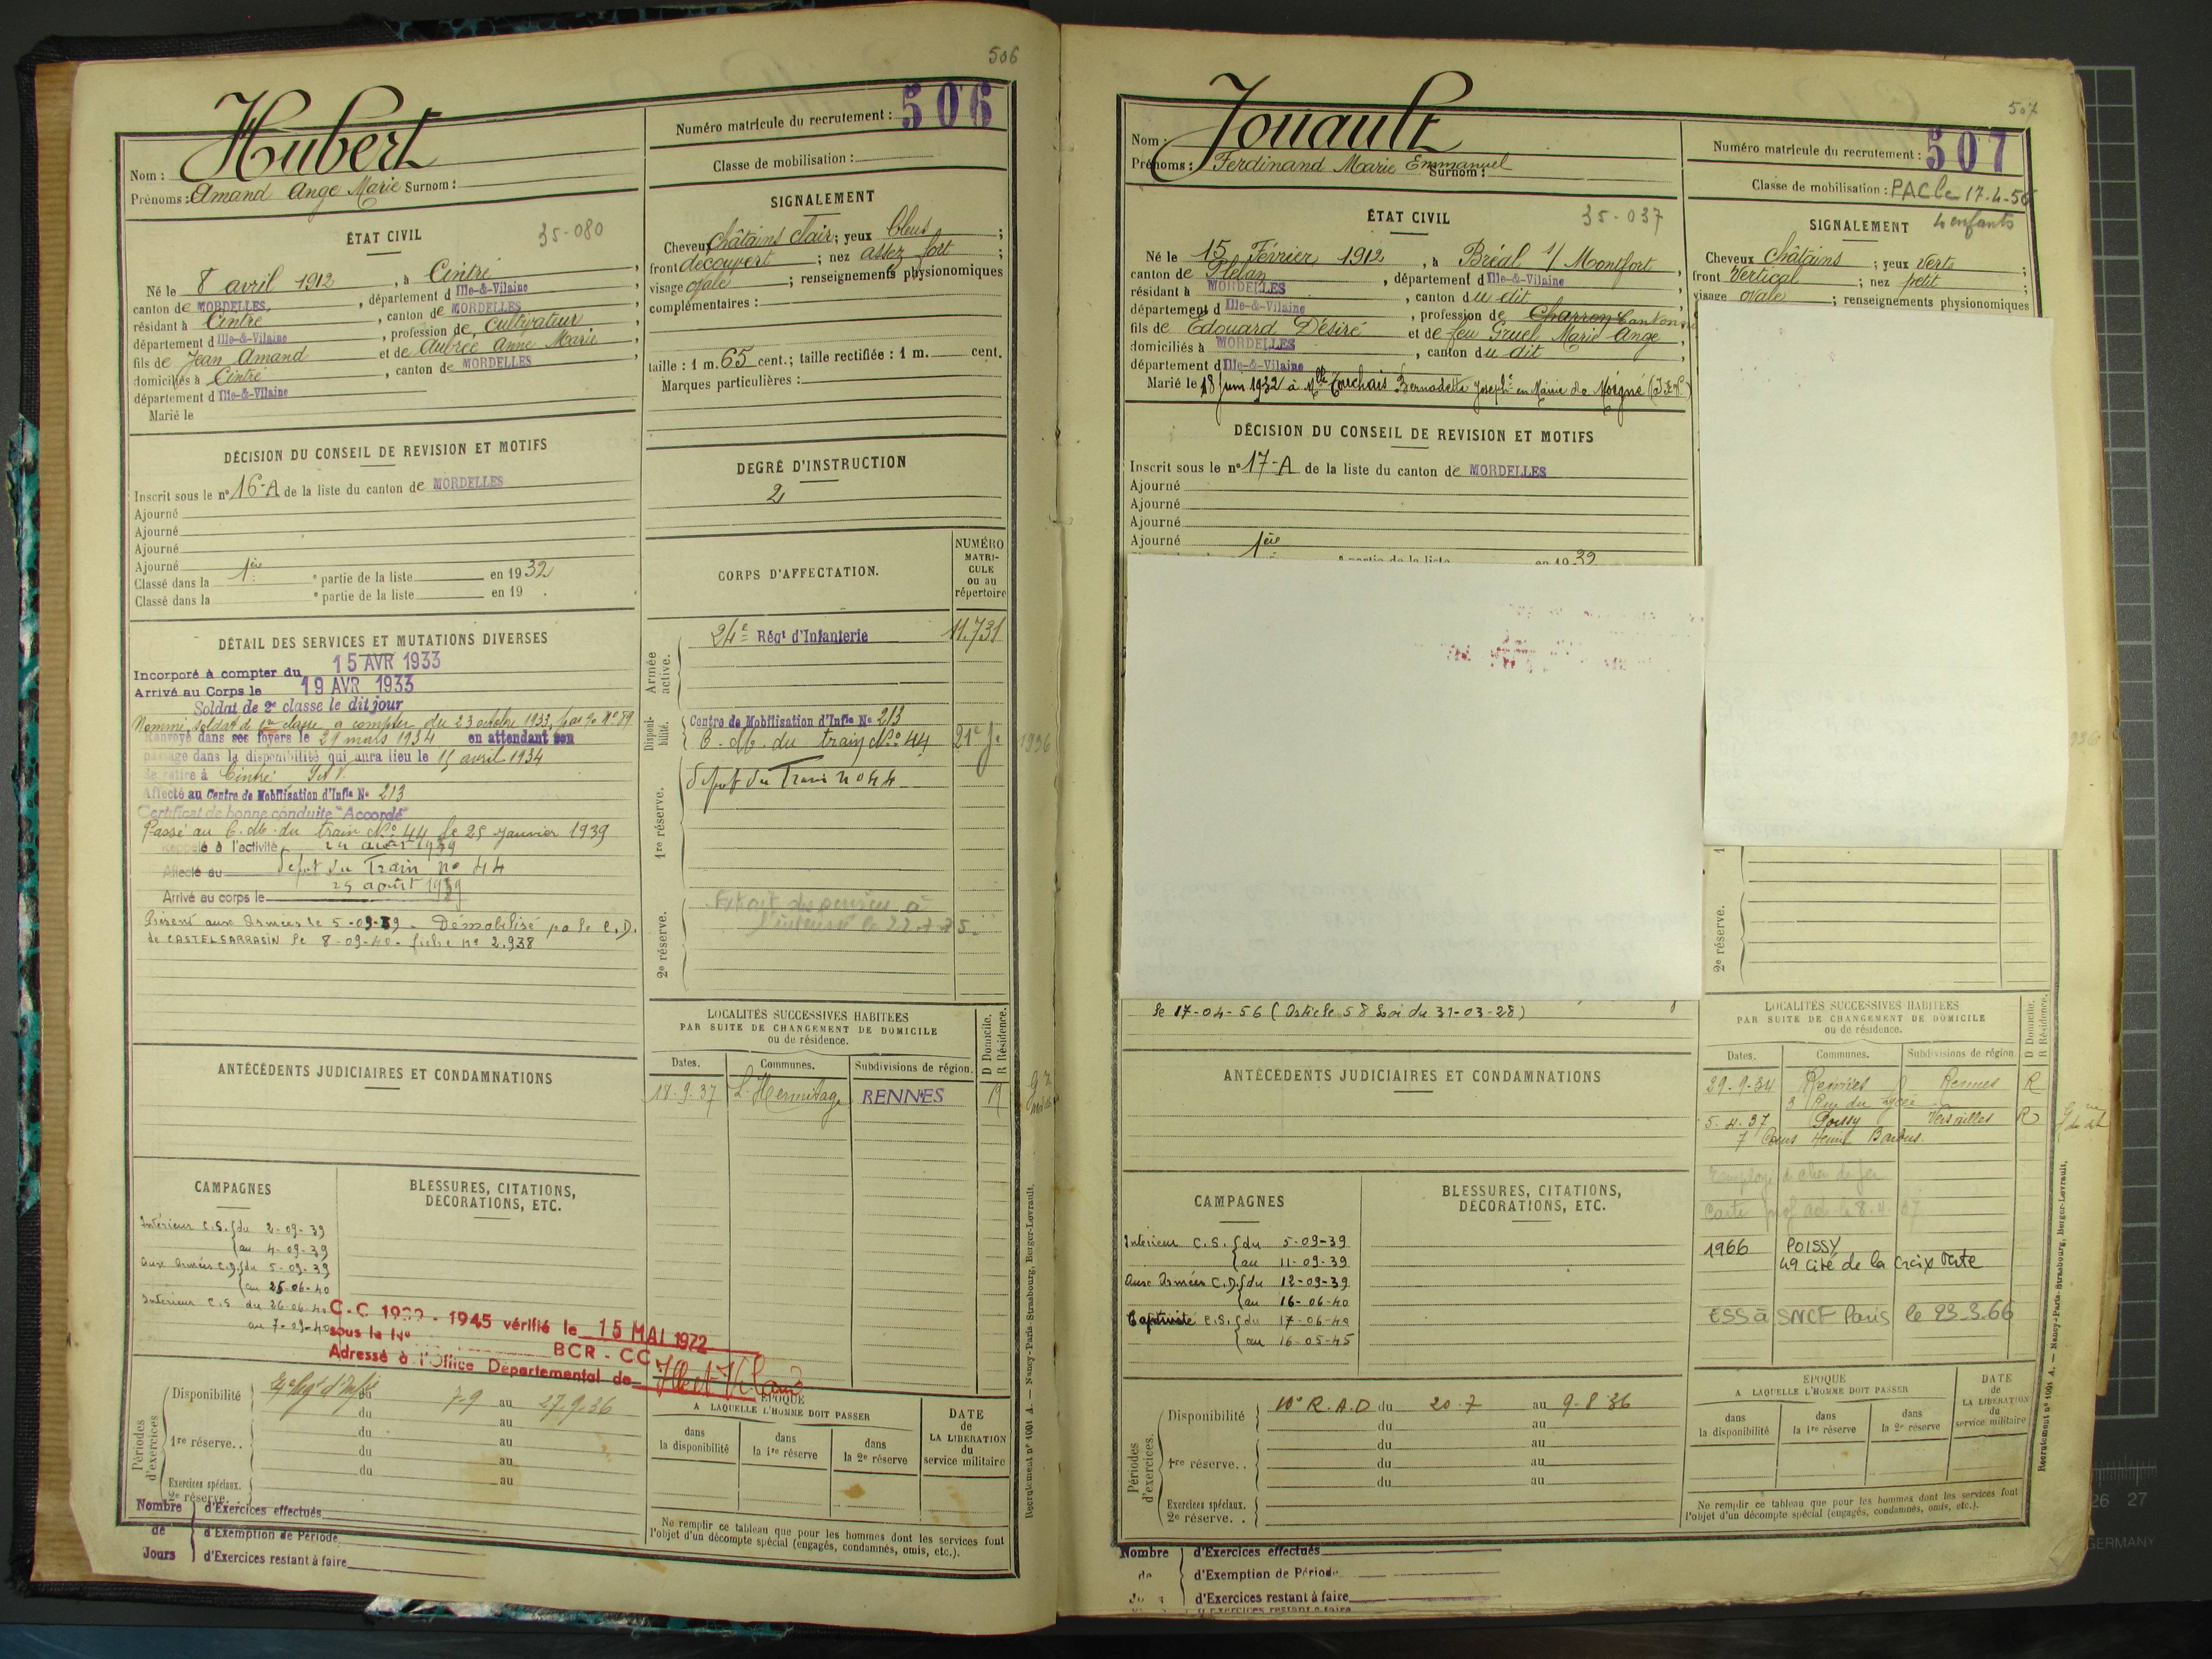 506
Hubert
Nom :
Prénoms : Amand Ange Marie Surnom :
Numéro matricule du recrutement : 506
Classe de mobilisation :
ÉTAT CIVIL
35-080
Né le 8 avril 1912, à Cintré,
canton de MORDELLES, département d Ille-&-Vilaine,
résidant à Cintré, canton de MORDELLES,
département d Ille-&-Vilaine, profession de cultivateur,
fils de Jean Amand et de Aubrée Anne Marie,
domiciliés à Cintré, canton de MORDELLES,
département d Ille-&-Vilaine
Marié le
SIGNALEMENT
Cheveux châtains clair; yeux bleus;
front découvert; nez assez fort;
visage ovale; renseignements physionomiques
complémentaires :
taille : 1 m. 65 cent.; taille rectifiée : 1 m. cent.
Marques particulières :
DÉCISION DU CONSEIL DE REVISION ET MOTIFS
Inscrit sous le n° 16-A de la liste du canton de MORDELLES
Ajourné
Ajourné
Ajourné
Ajourné
Classé dans la 1ère e partie de la liste en 1932
Classé dans la e partie de la liste en 19 .
DEGRÉ D'INSTRUCTION
2
CORPS D'AFFECTATION.
NUMÉRO
MATRI-
CULE
ou au
répertoire
DÉTAIL DES SERVICES ET MUTATIONS DIVERSES
Incorporé à compter du 15 AVR 1933
Arrivé au Corps le 19 AVR 1933
Soldat de 2e classe le dit jour
Nommé soldat de 1re classe à compter du 23 octobre 1933, par N° 89
Renvoyé dans ses foyers le 29 mars 1934 en attendant son
passage dans la disponibilité qui aura lieu le 15 avril 1934
Se retire à Cintré I et V.
Affecté au Centre de Mobilisation d'Infie N° 213
Certificat de bonne conduite "Accordé"
Passé au C. M. du train N° 44 le 25 Janvier 1939
Rappelé à l'activité 24 août 1939
Affecté au dépôt du Train n° 44
Arrivé au corps le 25 août 1939
Présent aux Armées le 5-09-39. Démobilisé par le C.D.
de CASTELSARRASIN le 8-09-40. fiche n° 2.938
Armée
active.
24e Régt d'Infanterie 11.731
Disponi-
bilité.
Centre de Mobilisation d'Infie N° 213
C. M. du train N° 44
1936
1re réserve.
dépôt du Train n° 44
2e réserve.
ANTÉCÉDENTS JUDICIAIRES ET CONDAMNATIONS
LOCALITÉS SUCCESSIVES HABITÉES
PAR SUITE DE CHANGEMENT DE DOMICILE
ou de résidence.
D Domicile.
R Résidence.
Dates. Communes. Subdivisions de région.
18-9-37 L'Hermitage RENNES
CAMPAGNES
BLESSURES, CITATIONS,
DÉCORATIONS, ETC.
Intérieur C.S. du 2-09-39
au 4-09-39
Aux Armées C.D. du 5-09-39
au 25-06-40
Intérieur C.S. du 26-06-40
au 7-09-40
C.C 1939 - 1945 vérifié le 15 MAI 1972
sous le N°
BCR - CC
Adressé à l'Office Départemental de Ille et Vilaine
Périodes
d'exercices
Disponibilité du 7-9 au 27.9.36
du au
1re réserve.. du au
du au
du au
Exercices spéciaux.
2e réserve.
ÉPOQUE
A LAQUELLE L'HOMME DOIT PASSER
dans
la disponibilité
dans
la 1re réserve
dans
la 2e réserve
DATE
de
LA LIBÉRATION
du
service militaire
Ne remplir ce tableau que pour les hommes dont les services font
l'objet d'un décompte spécial (engagés, condamnés, omis, etc.).
Nombre
de
Jours
d'Exercices effectués
d'Exemption de Période
d'Exercices restant à faire
Recrutement n° 1001 A. — Nancy-Paris-Strasbourg, Berger-Levrault.
507
Jouault
Nom :
Prénoms : Ferdinand Marie Emmanuel
Surnom :
Numéro matricule du recrutement : 507
Classe de mobilisation : PAC le 17-4-56
4 enfants
ÉTAT CIVIL
35-037
Né le 15 Février 1912, à Bréal s/ Montfort,
canton de Plélan, département d Ille-&-Vilaine,
résidant à MORDELLES, canton du dit,
département d Ille-&-Vilaine, profession de Charron
fils de Édouard Désiré et de feu Gruel Marie Ange,
domiciliés à MORDELLES, canton du dit,
département d Ille-&-Vilaine
Marié le 18 Juin 1932 à Mlle Touchais Bernadette Josephe en Mairie de Moigné (I&V)
SIGNALEMENT
Cheveux châtains; yeux verts;
front Vertical; nez petit;
visage ovale; renseignements physionomiques
DÉCISION DU CONSEIL DE REVISION ET MOTIFS
Inscrit sous le n° 17-A de la liste du canton de MORDELLES
Ajourné
Ajourné
Ajourné
Ajourné
1ère e partie de la liste en 1932
le 17-04-56 (Article 58 Loi du 31-03-28)
2e réserve.
ANTÉCÉDENTS JUDICIAIRES ET CONDAMNATIONS
LOCALITÉS SUCCESSIVES HABITÉES
PAR SUITE DE CHANGEMENT DE DOMICILE
ou de résidence.
D Domicile.
R Résidence.
Dates. Communes. Subdivisions de région.
29-9-34 Rennes Rennes R
5-4-37 Poissy Versailles R
Employé de chem de fer
1966 POISSY
49 cité de la Croix Verte
ESS à SNCF Paris le 23.3.66
CAMPAGNES
BLESSURES, CITATIONS,
DÉCORATIONS, ETC.
Intérieur C.S. du 5-09-39
au 11-09-39
Aux Armées C.D. du 12-09-39
au 16-06-40
Captivité C.S. du 17-06-40
au 16-05-45
Périodes
d'exercices.
Disponibilité 10e R.A.D du 20-7 au 9-8-36
du au
du au
1re réserve.. du au
du au
Exercices spéciaux.
2e réserve. .
ÉPOQUE
A LAQUELLE L'HOMME DOIT PASSER
dans
la disponibilité
dans
la 1re réserve
dans
la 2e réserve
DATE
de
LA LIBÉRATION
du
service militaire
Ne remplir ce tableau que pour les hommes dont les services font
l'objet d'un décompte spécial (engagés, condamnés, omis, etc.).
Nombre
de
d'Exercices effectués
d'Exemption de Période
d'Exercices restant à faire
Recrutement n° 1001 A. — Nancy-Paris-Strasbourg, Berger-Levrault.
26 27
GERMANY